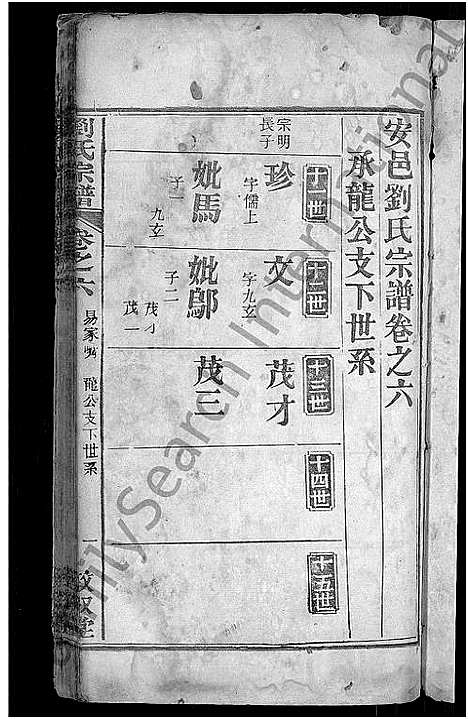 安邑劉氏宗譜卷之六
承龍公支下世系
十一世
宗明長子
珍
字儒上
妣馬
子一
九玄
十二世
文
字九玄
妣鄔
子二
茂才
茂一
十三世
茂才
茂三
十四世
十五世
劉氏宗譜
卷之六
龍公支下世系
一
FamilySearch International